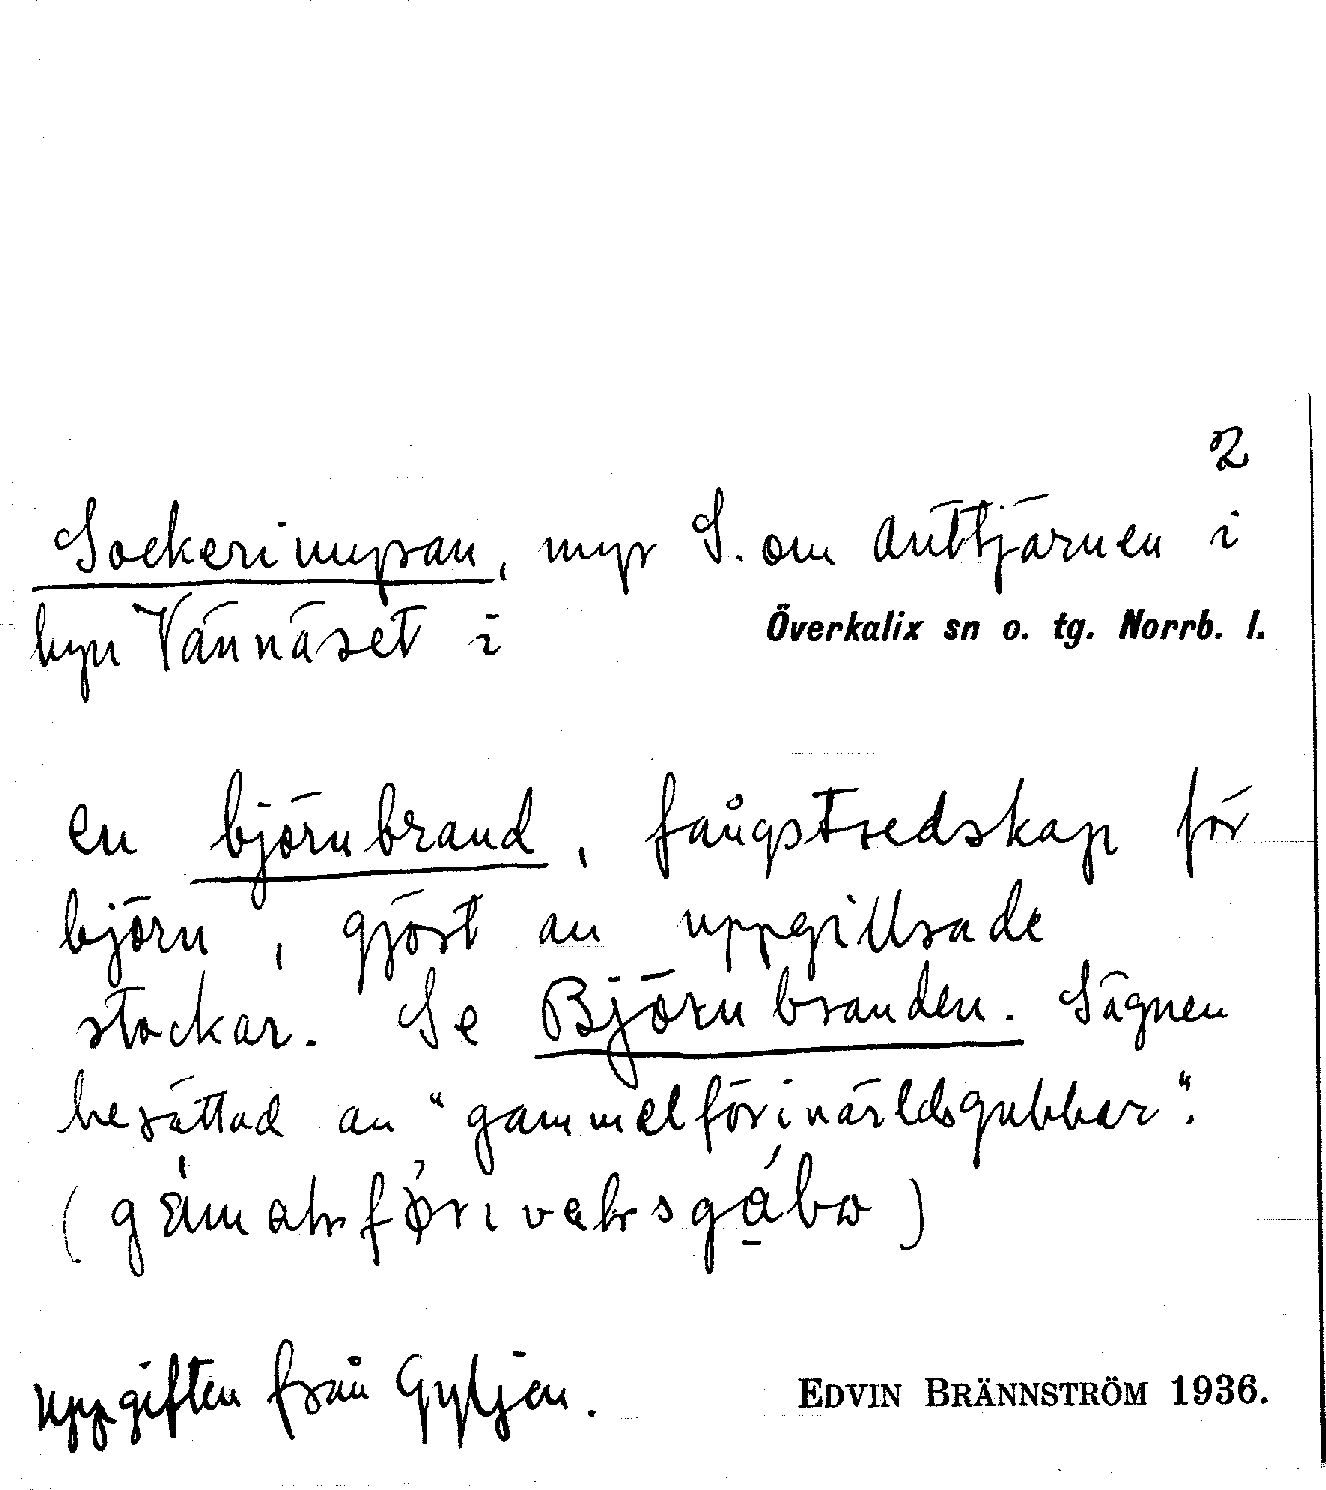 2
Sockerimyran, myr S. om Anttjärnen i
byn Vännäset i Överkalix sn o. tg. Norrb. l.
en björnbrand, fångstredskap för
björn, gjort av uppgillrade
stockar. Se Björnbranden. Sägnen
besättad av "gammelförivärldsgubbar".
uppgiften från Gyljen. EDVIN BRÄNNSTRÖM 1936.